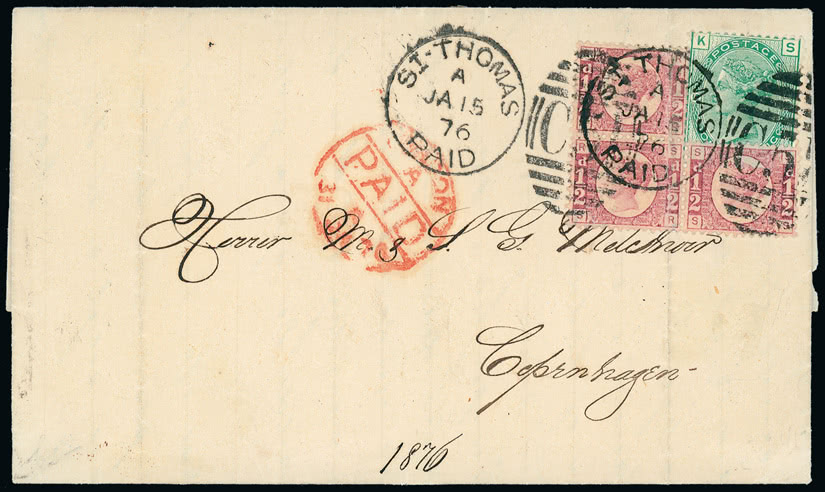 ST-THOMAS
A
JA 15
76
PAID
ST-THOMAS
A
JA 15
76
PAID
K S
POSTAGE
1/2
1/2
1/2
C51
PAID
Herrer M. J. S. G. Melchior
Copnhagen
1876